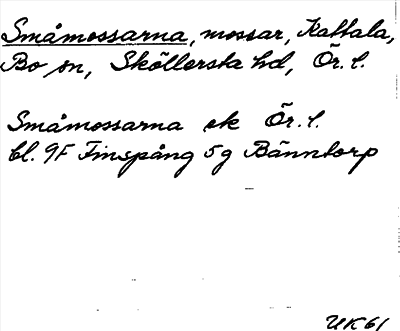 Småmossarna, mossar, Kattala,
Bo sn, Sköllersta hd, Ör. l.
Småmossarna ek Ör. l.
bl. 9F Finspång 5g Bänntorp
UK61